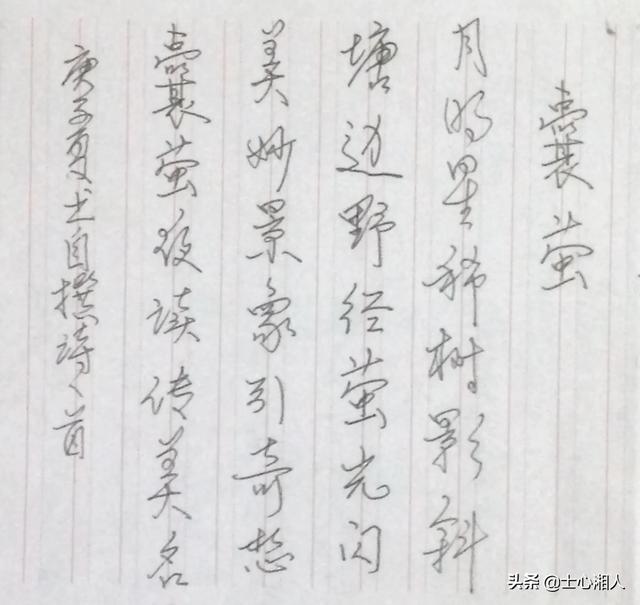 囊萤
月明星稀树影斜
塘边野径萤光闪
美妙景象引奇想
囊萤夜读传美名
庚子夏士自撰诗一首
头条 @士心湘人